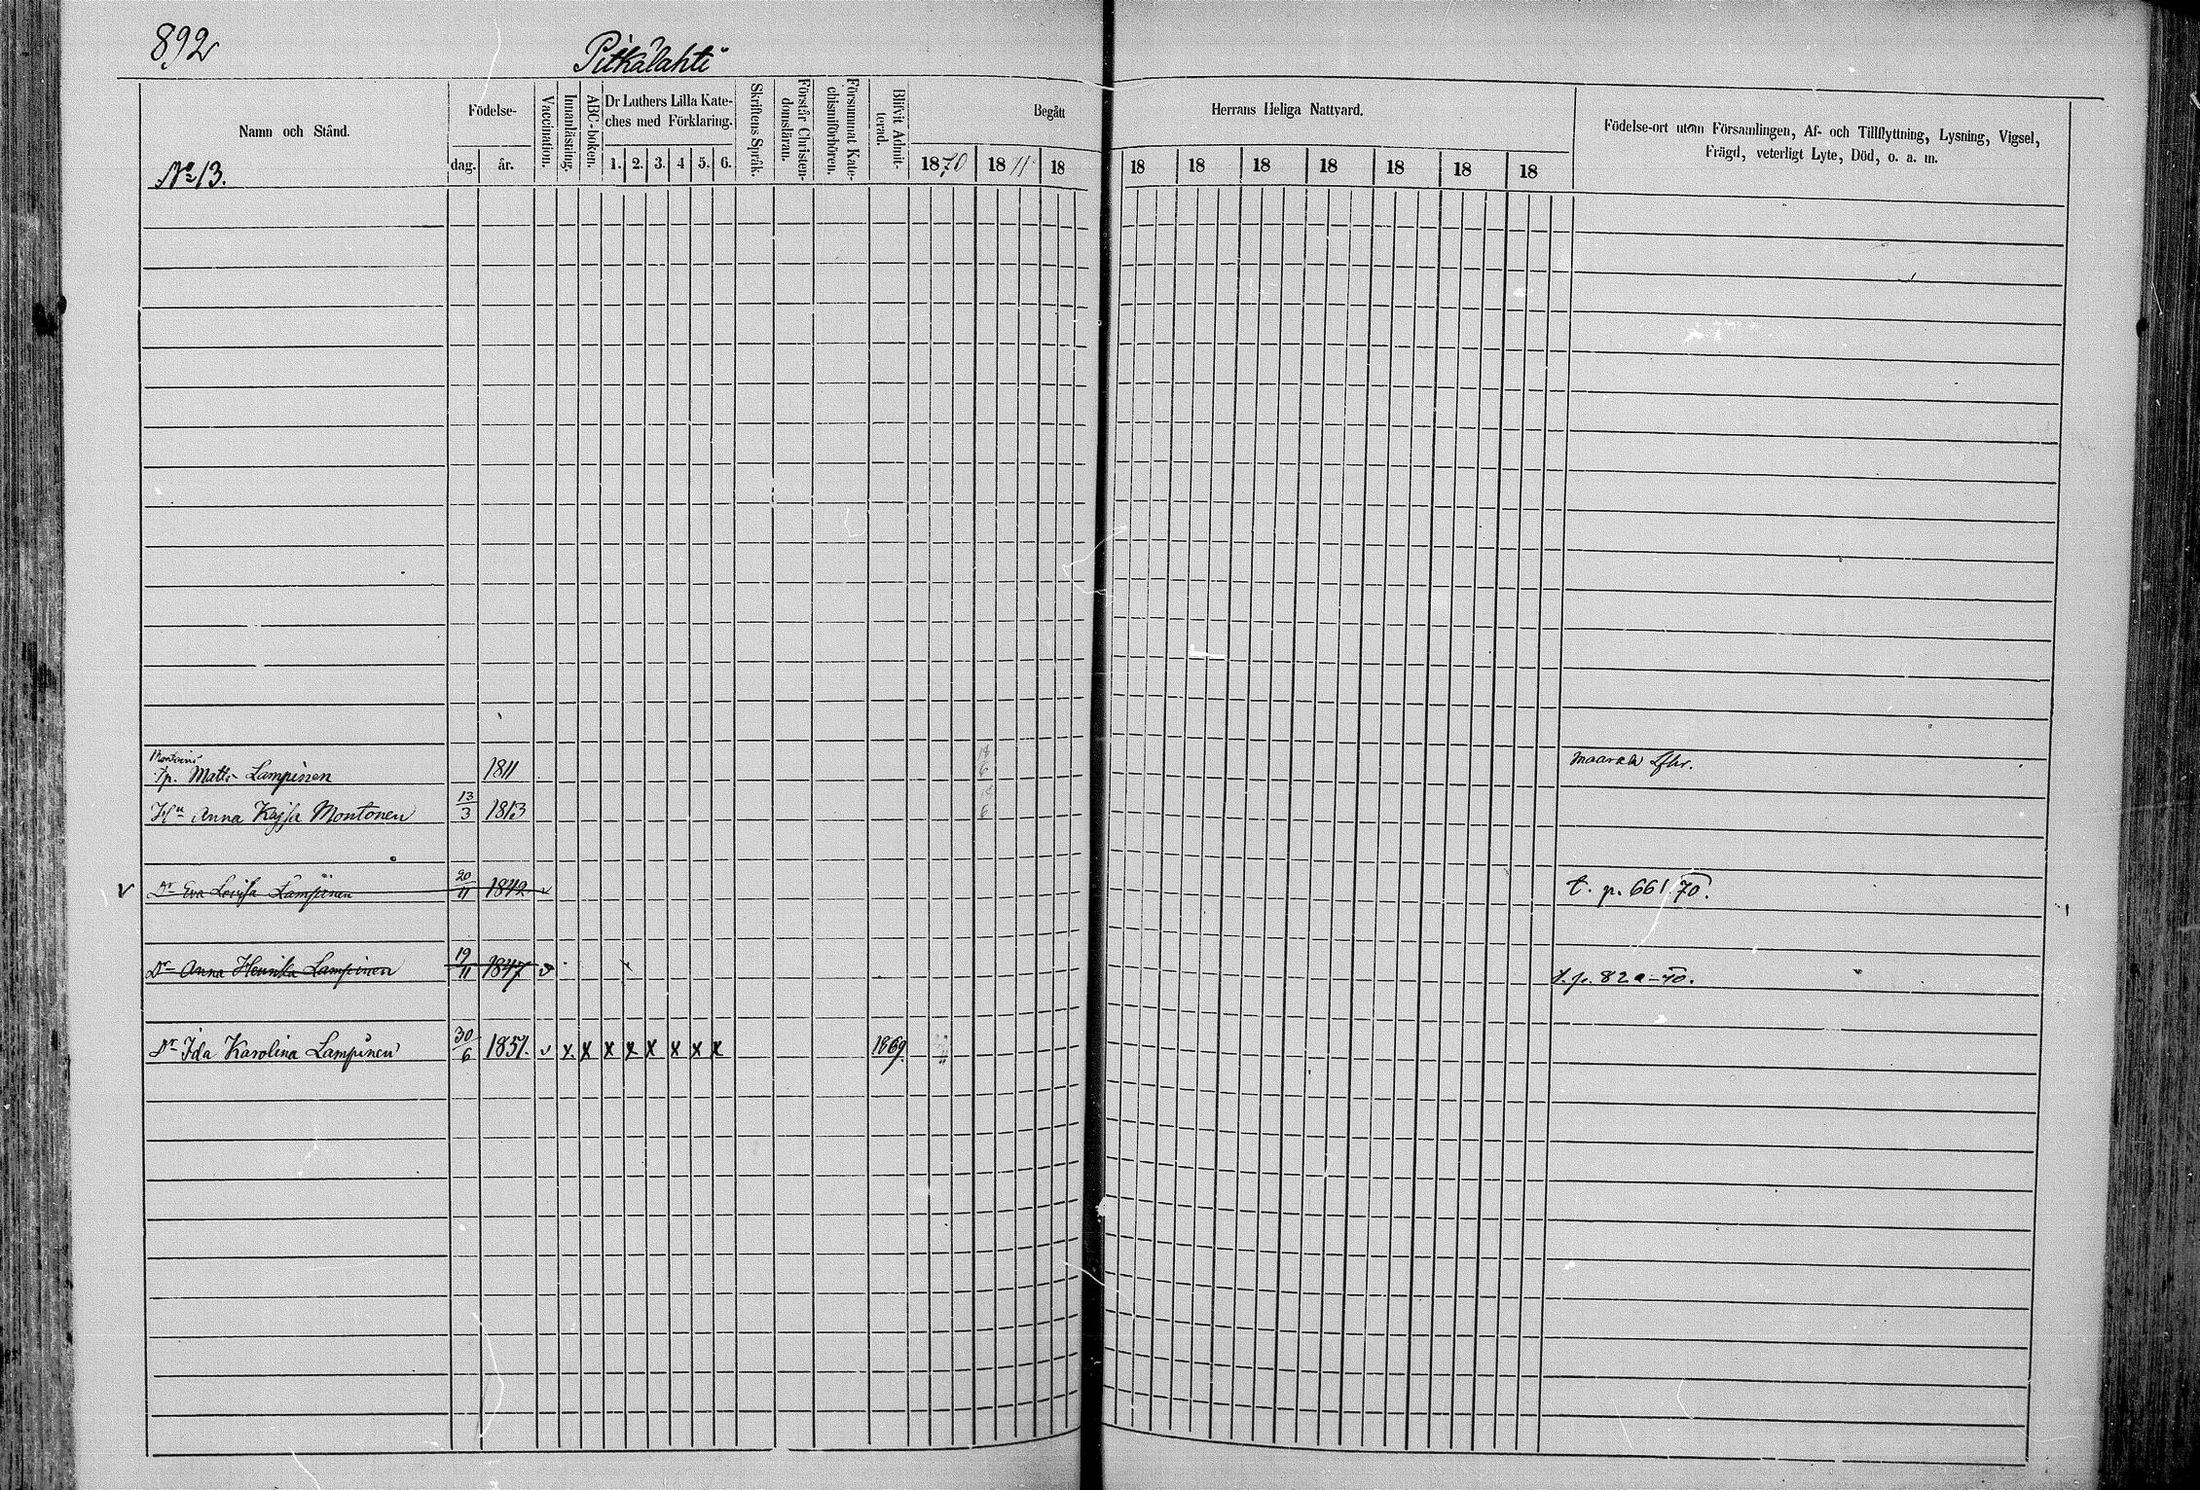 892
Pitkälahti
Namn och Stånd.
Födelse-
dag.
år.
Vaccination.
Innanläsning.
ABC-boken.
Dr Luthers Lilla Kate-
ches med Förklaring.
1. 2. 3. 4 5. 6.
Skriftens Språk.
Förstår Christen-
domsläran.
Försummat Kate-
chismiförhören.
Blifvit Admit-
terad.
Begått
Herrans Heliga Nattvard.
1870 1871 18 18 18 18 18 18 18 18
Födelse-ort utom Församlingen, Af- och Tillflyttning, Lysning, Vigsel,
Frägd, veterligt Lyte, Död, o. a. m.
No 13.
Matts Lampinen 1811
Hu Anna Kajsa Montonen 13/3 1813
v Dr Eva Lovisa Lampinen 20/11 1842 v t. p. 661.70.
Dr Anna Henrika Lampinen 19/11 1847 v t. p. 82a-70.
Dr Ida Karolina Lampinen 30/6 1851. v x. x x x x x x x 1869.